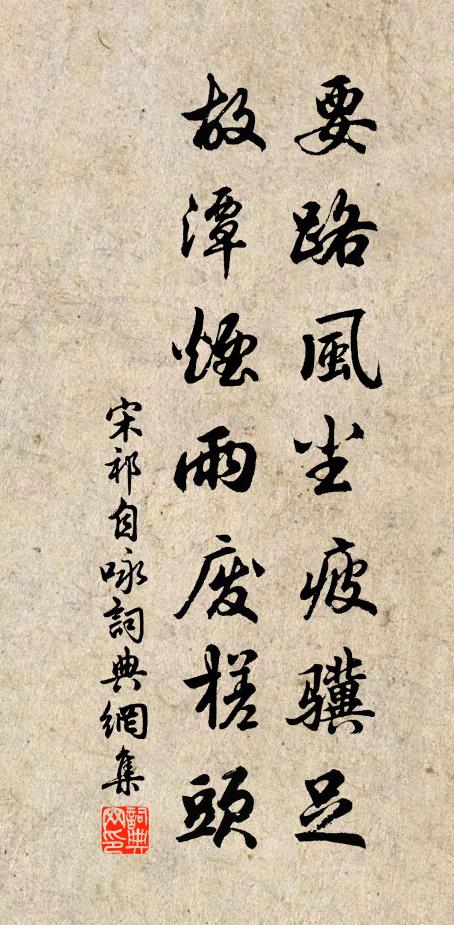 要路風尘疲驥足
故潭煙雨废槎頭
宋祁自咏詞典網集
詞典網印